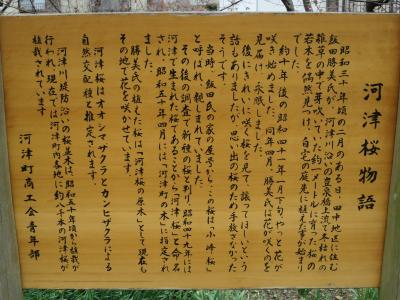 河津桜物語
昭和三十年頃の二月のある日、田中地区に住む
飯田勝美氏が、河津川沿いの豊泉橋上流で冬枯れの
雑草の中で芽吹いていた約一メートルに育った桜の
若木を偶然見つけ、自宅の庭先に植えた事が始まり
でした。
約十年後の昭和四十一年一月下旬、やっと花が
咲き始めました。同年四月、勝美氏は花が咲くのを
見届け、永眠しました。
後にきれいに咲く桜を見て譲ってほしいという
話もありましたが、思い出の桜のため手放さなかった
そうです。
当時、飯田氏の家の屋号から、この桜は「小峰桜」
と呼ばれ、親しまれていました。
その後の調査で新種の桜と判り、昭和四十九年には
河津で生まれた桜であることから「河津桜」と命名
され、昭和五十年四月には、河津町の「木」に指定され
ました。
勝美氏の植えた桜は「河津桜の原木」として現在も
その地で花を咲かせています。
河津桜はオオシマザクラとカンヒザクラによる
自然交配種と推定されます。
河津川堤防沿いの桜並木は、昭和五十年頃から植栽が
行われ、現在では河津町内各地に約八千本の河津桜が
植栽されています。
河津町商工会青年部